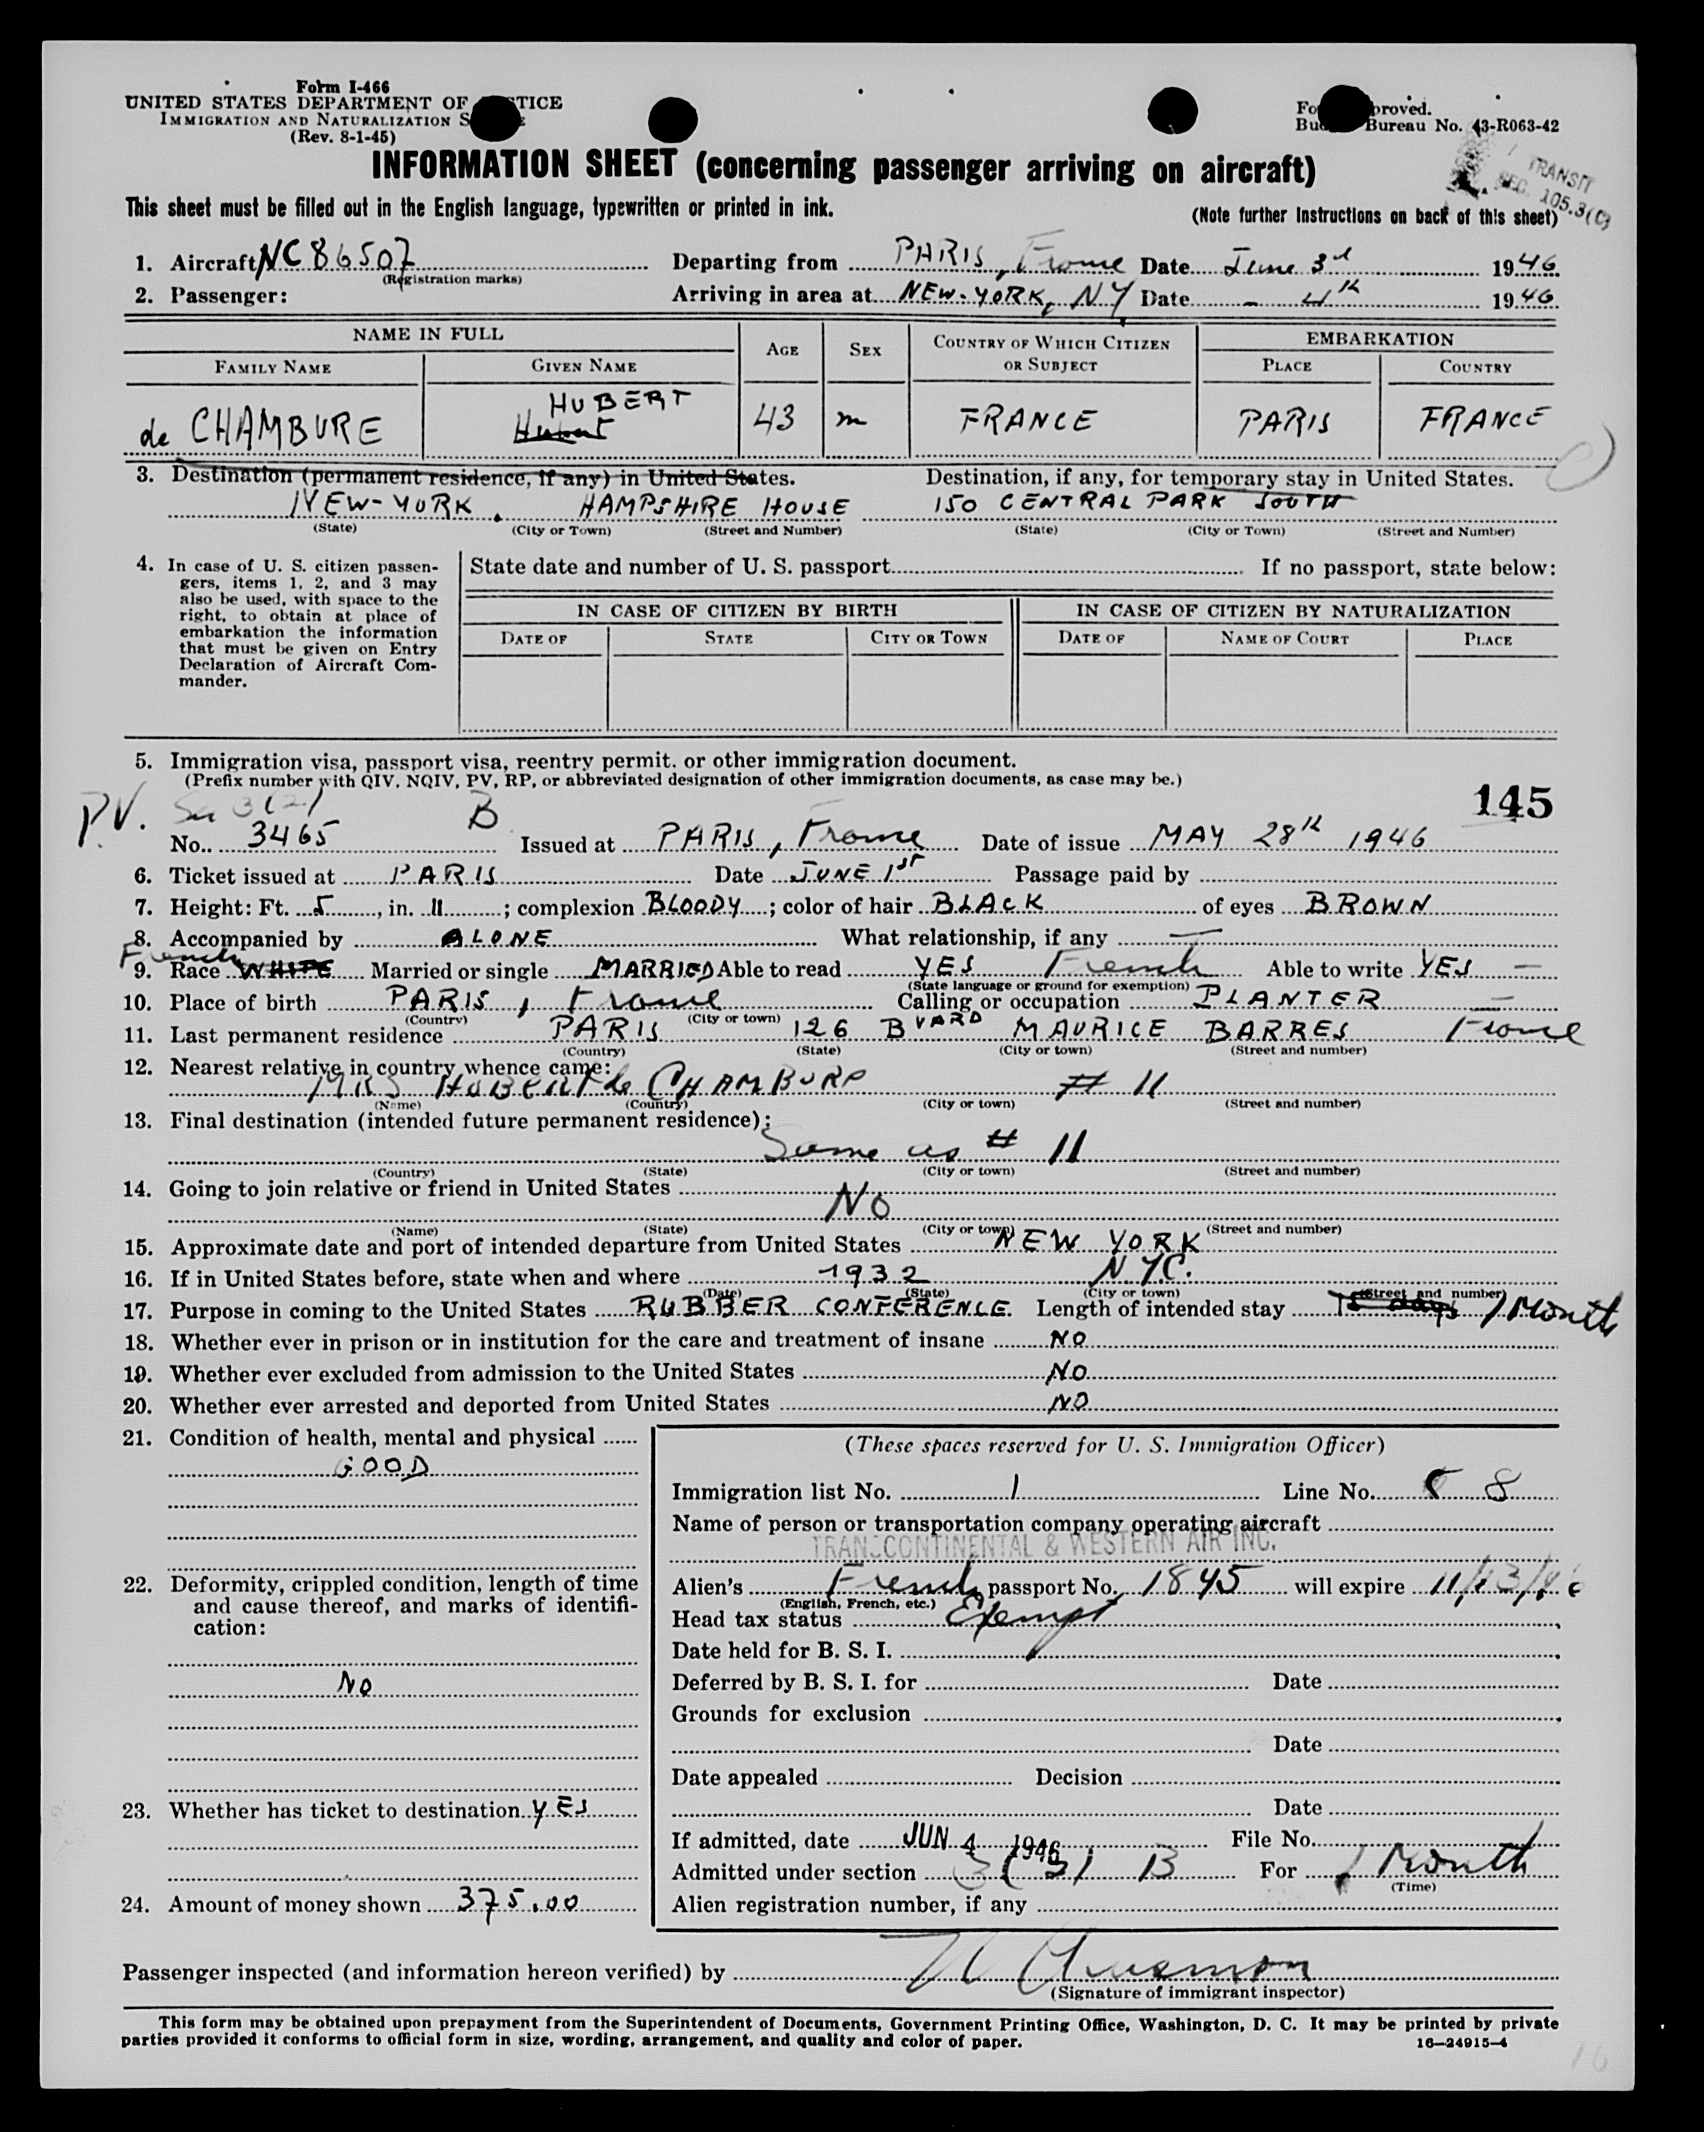 Form I-466
UNITED STATES DEPARTMENT OF TICE
IMMIGRATION AND NATURALIZATION S
(Rev. 8-1-45)
Fo proved.
Bud Bureau No. 43-R063-42
TRANSIT
SEC. 105.3(C)
INFORMATION SHEET (concerning passenger arriving on aircraft)
This sheet must be filled out in the English language, typewritten or printed in ink.
(Note further instructions on back of this sheet)
1. Aircraft NC 86507 Departing from PARIS, France Date June 3d 1946
(Registration marks)
2. Passenger: Arriving in area at NEW-YORK, NY Date - 4th 1946
NAME IN FULL AGE SEX COUNTRY OF WHICH CITIZEN OR SUBJECT EMBARKATION
FAMILY NAME GIVEN NAME PLACE COUNTRY
HUBERT
de CHAMBURE Hubert 43 m FRANCE PARIS FRANCE
3. Destination (permanent residence, if any) in United States. Destination, if any, for temporary stay in United States.
NEW-YORK, HAMPSHIRE HOUSE 150 CENTRAL PARK SOUTH
(State) (City or Town) (Street and Number) (State) (City or Town) (Street and Number)
4. In case of U. S. citizen passen-
gers, items 1, 2, and 3 may
also be used, with space to the
right, to obtain at place of
embarkation the information
that must be given on Entry
Declaration of Aircraft Com-
mander.
State date and number of U. S. passport If no passport, state below:
IN CASE OF CITIZEN BY BIRTH IN CASE OF CITIZEN BY NATURALIZATION
DATE OF STATE CITY OR TOWN DATE OF NAME OF COURT PLACE
5. Immigration visa, passport visa, reentry permit, or other immigration document.
(Prefix number with QIV, NQIV, PV, RP, or abbreviated designation of other immigration documents, as case may be.)
145
P.V. 3(2) B
No. 3465 Issued at PARIS, France Date of issue MAY 28th 1946
6. Ticket issued at PARIS Date JUNE 1st Passage paid by
7. Height: Ft. 5, in. 11; complexion BLOODY; color of hair BLACK of eyes BROWN
8. Accompanied by ALONE What relationship, if any —
French
9. Race WHITE Married or single MARRIED Able to read YES French Able to write YES —
(State language or ground for exemption)
10. Place of birth PARIS, France Calling or occupation PLANTER —
(Country) (City or town)
11. Last permanent residence PARIS 126 BVARD MAURICE BARRES France
(Country) (State) (City or town) (Street and number)
12. Nearest relative in country whence came:
MRS HUBERT de CHAMBURE # 11
(Name) (Country) (City or town) (Street and number)
13. Final destination (intended future permanent residence):
Same as # 11
(Country) (State) (City or town) (Street and number)
14. Going to join relative or friend in United States
NO
(Name) (State) (City or town) (Street and number)
15. Approximate date and port of intended departure from United States NEW YORK
16. If in United States before, state when and where 1932 N.Y.C.
(Date) (State) (City or town) (Street and number)
17. Purpose in coming to the United States RUBBER CONFERENCE. Length of intended stay 15 days 1 Month
18. Whether ever in prison or in institution for the care and treatment of insane NO
19. Whether ever excluded from admission to the United States NO
20. Whether ever arrested and deported from United States NO
21. Condition of health, mental and physical
GOOD
22. Deformity, crippled condition, length of time
and cause thereof, and marks of identifi-
cation:
NO
23. Whether has ticket to destination YES
24. Amount of money shown 375.00
(These spaces reserved for U. S. Immigration Officer)
Immigration list No. 1 Line No. 8
Name of person or transportation company operating aircraft
TRANSCONTINENTAL & WESTERN AIR INC.
Alien's French passport No. 1845 will expire 11/13/46
(English, French, etc.)
Head tax status Exempt
Date held for B. S. I.
Deferred by B. S. I. for Date
Grounds for exclusion
Date
Date appealed Decision
Date
If admitted, date JUN 4 1946 File No.
Admitted under section 3(2) B For 1 Month
(Time)
Alien registration number, if any
Passenger inspected (and information hereon verified) by
(Signature of immigrant inspector)
This form may be obtained upon prepayment from the Superintendent of Documents, Government Printing Office, Washington, D. C. It may be printed by private
parties provided it conforms to official form in size, wording, arrangement, and quality and color of paper.
16—24915-4
16